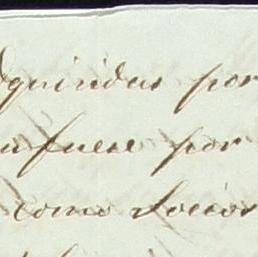 dquiridas por
fuese por
como Socios